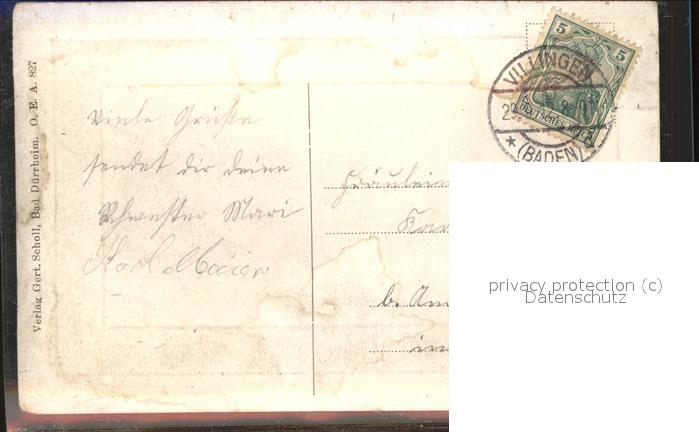 Verlag Gert. Scholl, Bad Dürrheim. O. E. A. 827
Viele Grüße
sendet dir deine
Schwester Mari
Karl Meier
5 5
DEUTSCHES REICH
VILLINGEN
* (BADEN)
Fräulein
b.
in
privacy protection (c)
Datenschutz